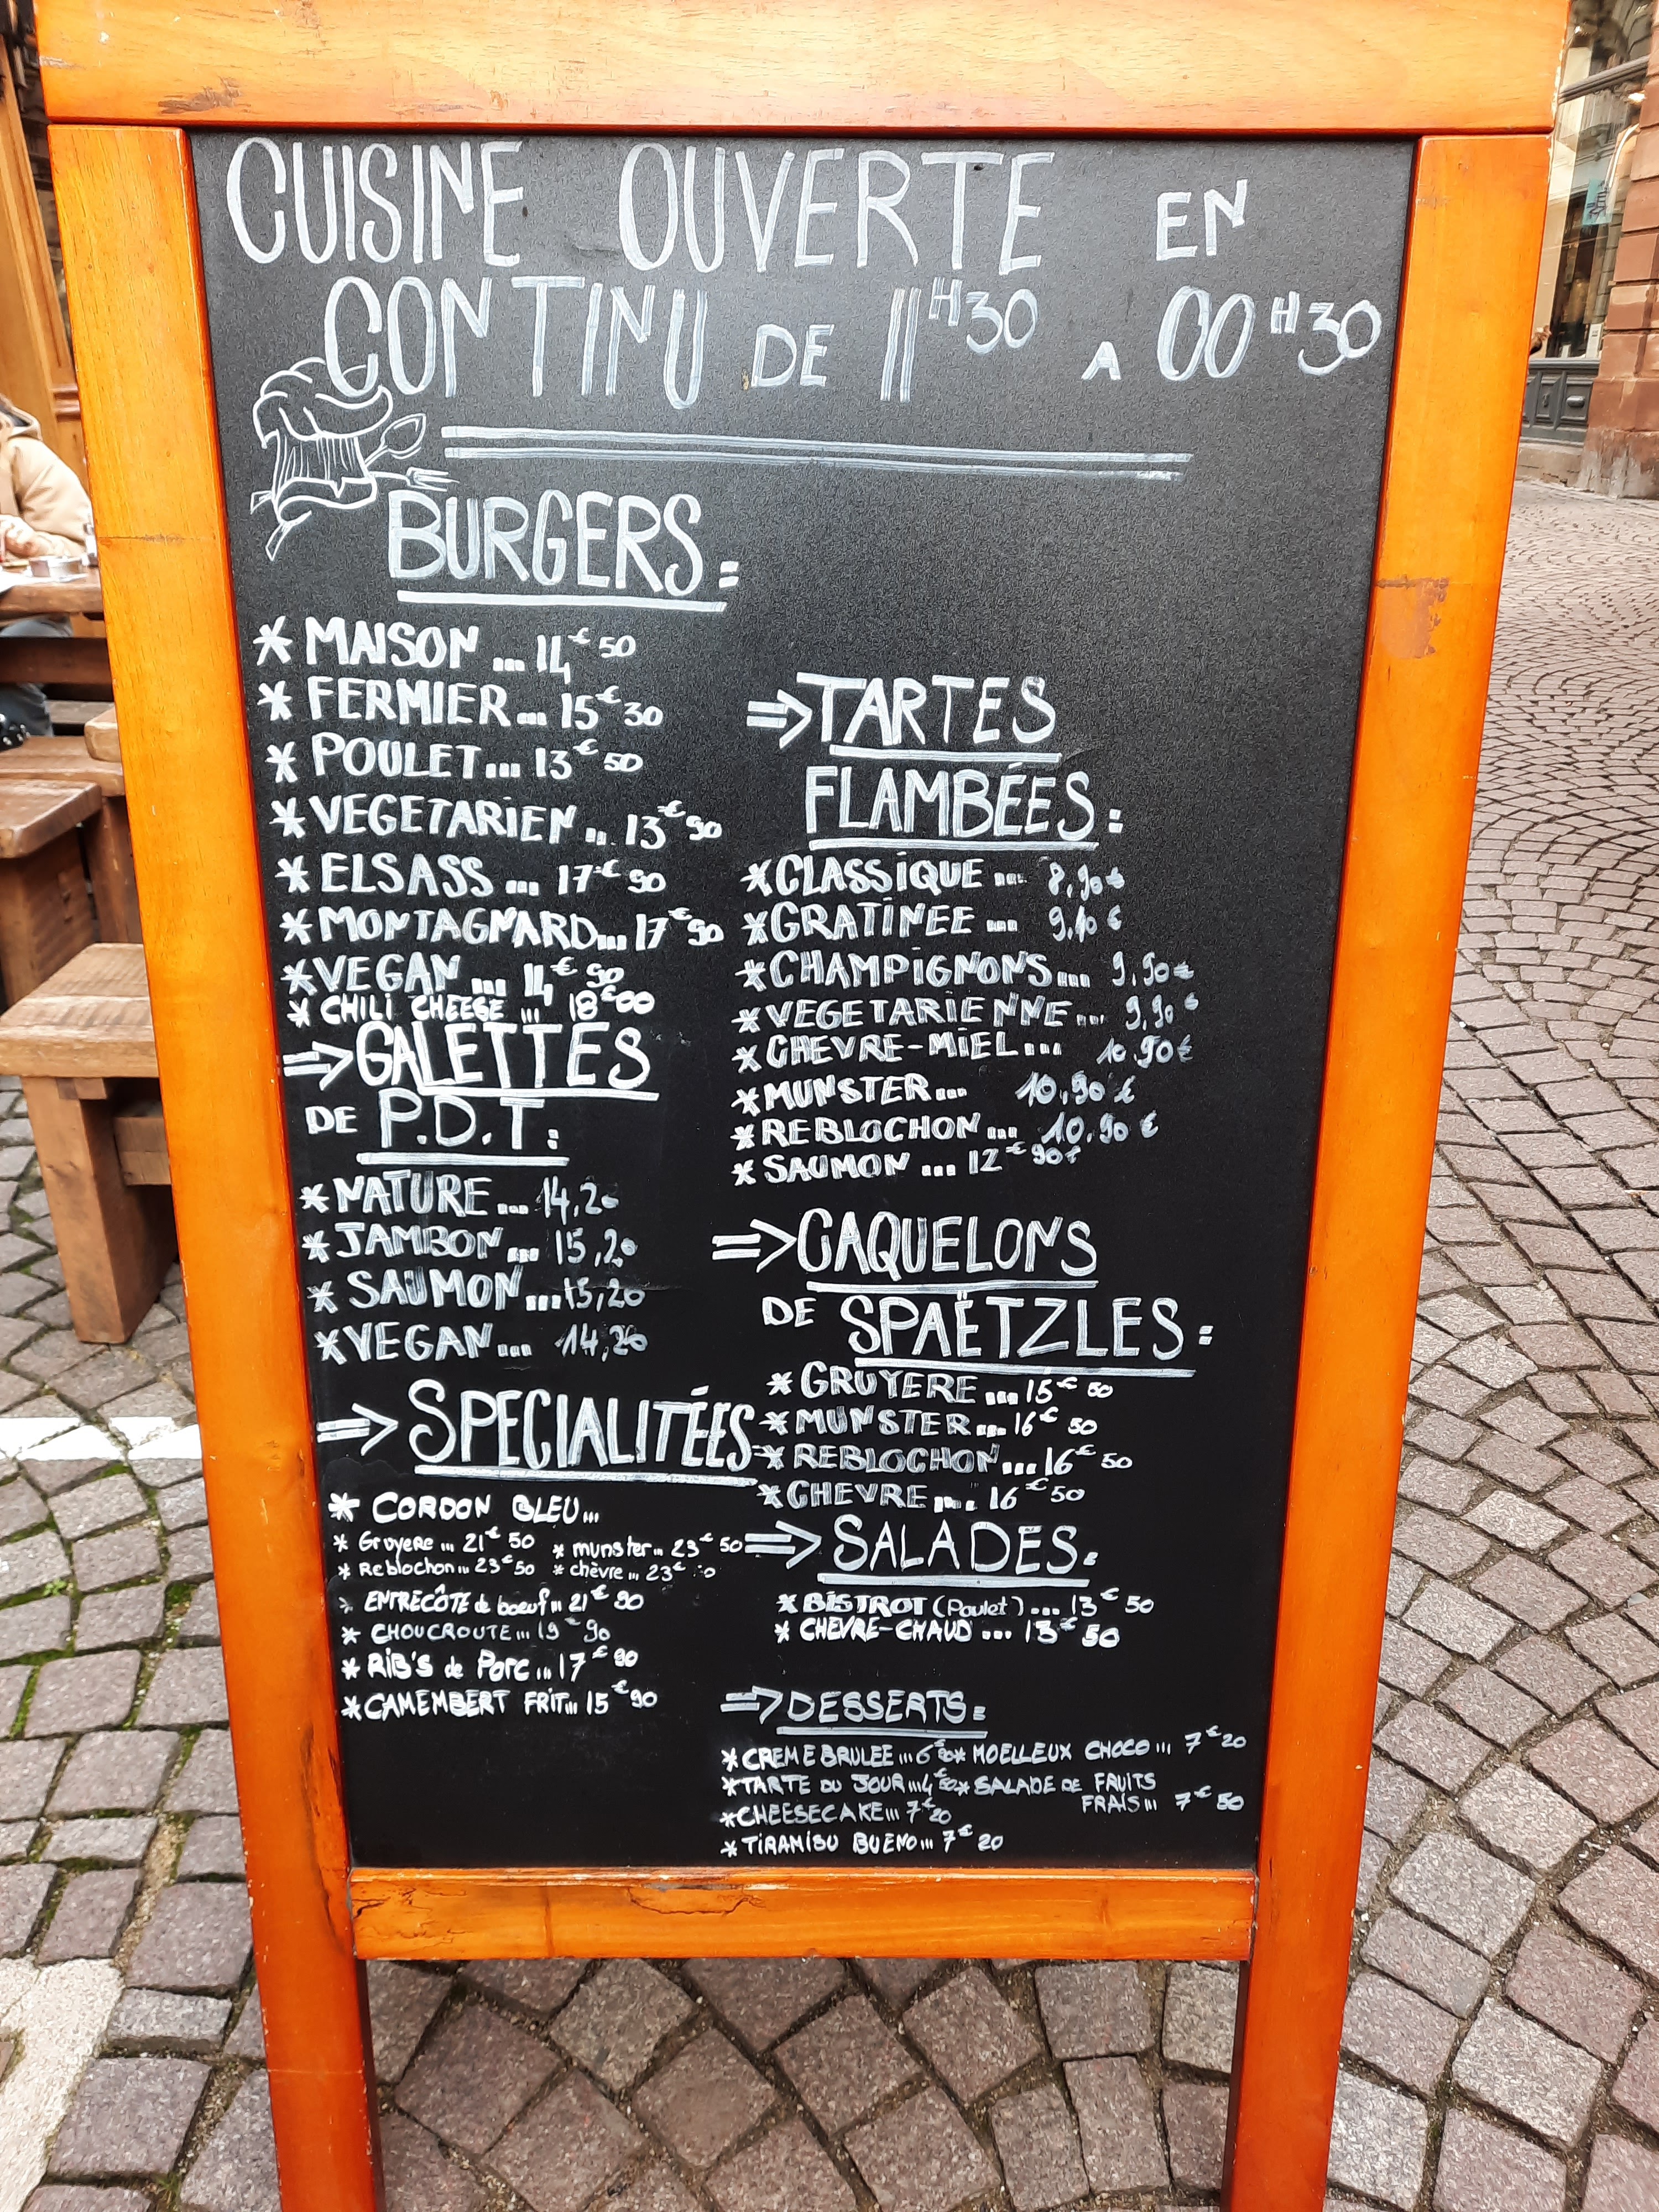 CUISINE OUVERTE EN
CONTINU DE 11H30 A 00H30
BURGERS:
* MAISON ... 14€50
* FERMIER ... 15€30
* POULET ... 13€50
* VEGETARIEN ... 13€90
* ELSASS ... 17€90
* MONTAGNARD ... 17€90
* VEGAN ... 14€90
* CHILI CHEESE ... 18€00
=> GALETTES
DE P.D.T:
* NATURE ... 14,20
* JAMBON ... 15,20
* SAUMON ... 15,20
* VEGAN ... 14,20
=> SPECIALITÉES
* CORDON BLEU...
* Gruyere ... 21€50 * munster ... 23€50
* Reblochon ... 23€50 * chèvre ... 23€
* ENTRECÔTE de boeuf ... 21€90
* CHOUCROUTE ... 19€90
* RIB'S de Porc ... 17€90
* CAMEMBERT FRIT ... 15€90
=> TARTES
FLAMBÉES:
* CLASSIQUE ... 8,90€
* GRATINEE ... 9,40€
* CHAMPIGNONS ... 9,90€
* VEGETARIENNE ... 9,90€
* CHEVRE-MIEL ... 10,90€
* MUNSTER ... 10,90€
* REBLOCHON ... 10,90€
* SAUMON ... 12€90€
=> CAQUELONS
DE SPAËTZLES:
* GRUYERE ... 15€50
* MUNSTER ... 16€50
* REBLOCHON ... 16€50
* CHEVRE ... 16€50
=> SALADES:
* BISTROT (Poulet) ... 13€50
* CHEVRE-CHAUD ... 13€50
=> DESSERTS:
* CREME BRULEE ... * MOELLEUX CHOCO ... 7€20
* TARTE DU JOUR ... * SALADE DE FRUITS
FRAIS ... 7€50
* CHEESECAKE ... 7€20
* TIRAMISU BUENO ... 7€20